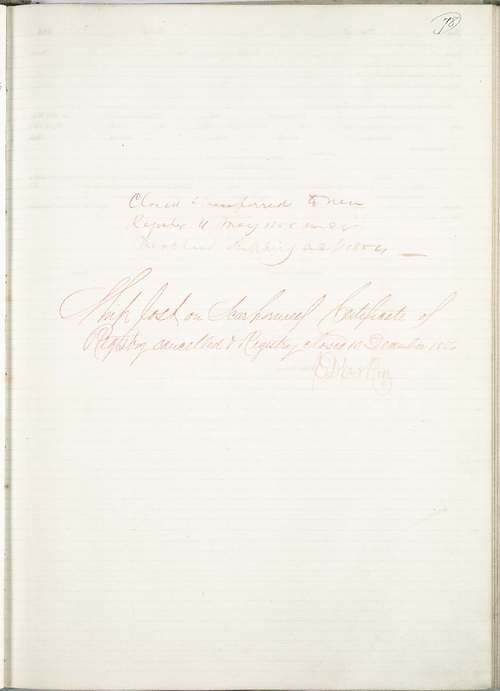 78
Closed & transferred to New
Register 11 May 1855 under
Merchant Shipping Act 1854
Ship lost on Certificate of
Registry cancelled & Registry closed 10 December 185